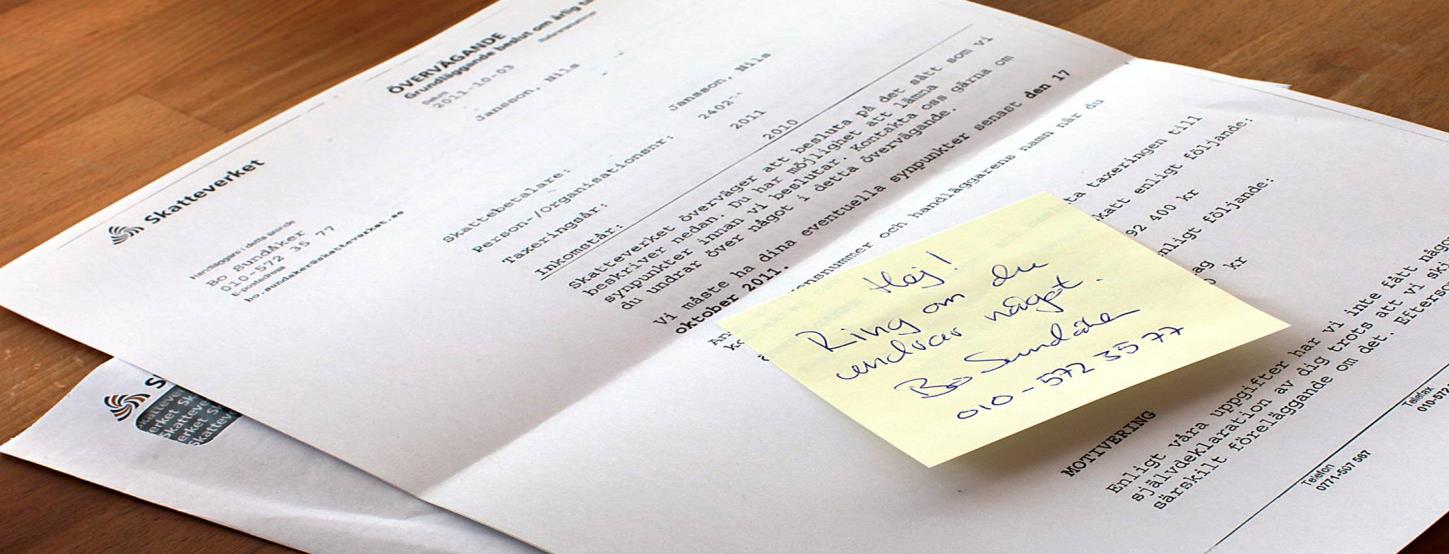 Skatteverket
ÖVERVÄGANDE
Grundläggande beslut om årlig
Datum
2011-10-03
Jansson, Nils
Handläggare i detta ärende
Bo Sundåker
010-572 35 77
E-postadress
bo.sundaker@skatteverket.se
Skattebetalare: Jansson, Nils
Person-/Organisationsnr: 2402-
Taxeringsår: 2011
Inkomstår: 2010
Skatteverket överväger att besluta på det sätt som vi
beskriver nedan. Du har möjlighet att lämna
synpunkter innan vi beslutar. Kontakta oss gärna om
du undrar över något i detta övervägande.
Vi måste ha dina eventuella synpunkter senast den 17
oktober 2011.
onsnummer och handläggarens namn när du
ta taxeringen till
katt enligt följande:
92 400 kr
nligt följande:
ag
0 kr
Hej!
Ring om du
undrar något.
Bo Sundåker
010-572 35 77
MOTIVERING
Enligt våra uppgifter har vi inte fått någo
självdeklaration av dig trots att vi ski
särskilt föreläggande om det. Eftersо
Telefon
0771-567 567
Telefax
010-572
S
skatteve
erket Sk
skatteve
erket Sk
Skattev